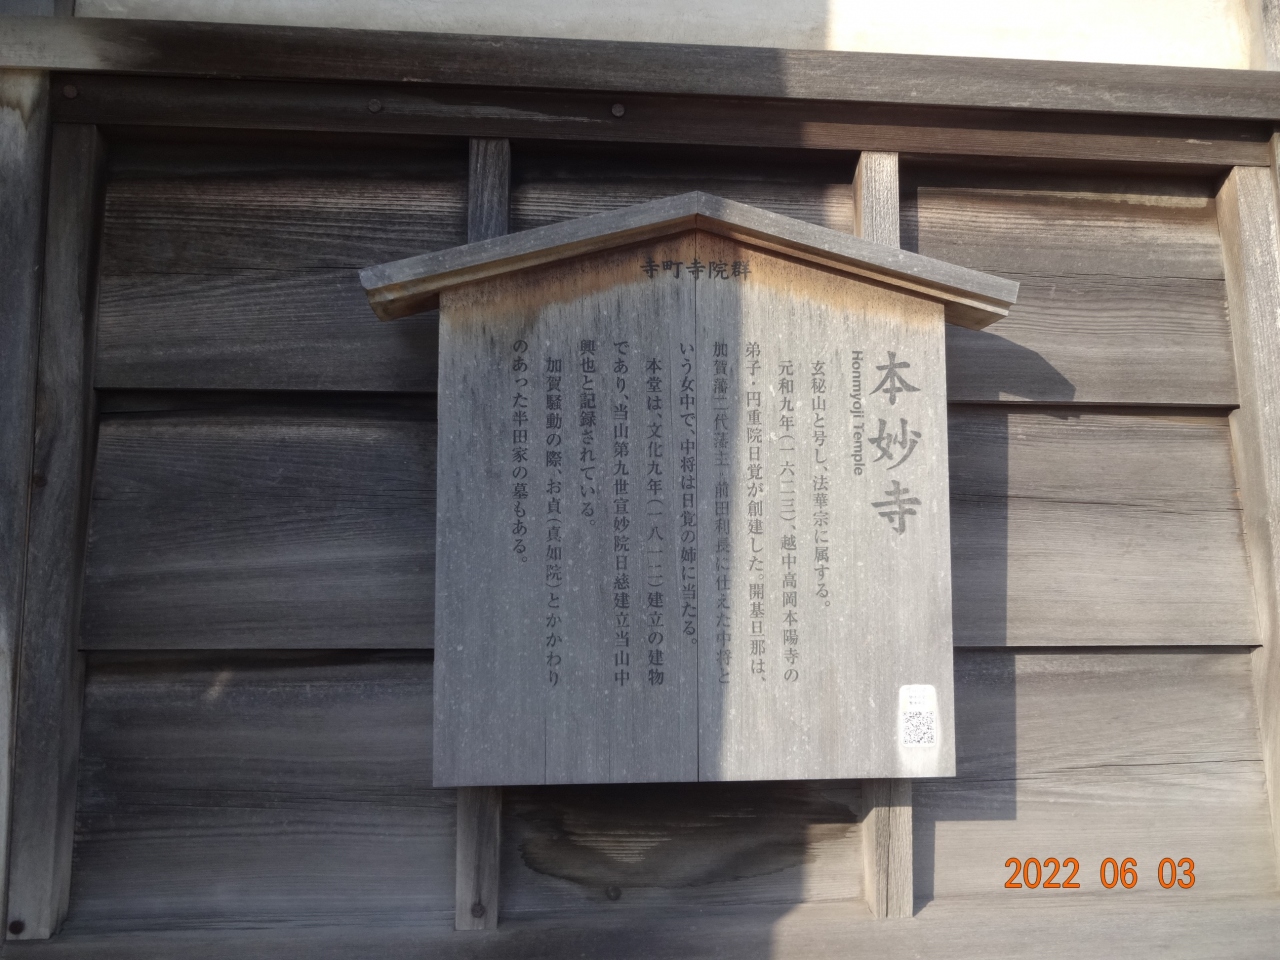 寺町寺院群
本妙寺
Honmyoji Temple
玄秘山と号し、法華宗に属する。
元和九年（一六二三）、越中高岡本陽寺の
弟子・円重院日覚が創建した。開基旦那は、
加賀藩二代藩主 前田利長に仕えた中将と
いう女中で、中将は日覚の姉に当たる。
本堂は、文化九年（一八一二）建立の建物
であり、当山第九世宣妙院日慈建立当山中
興也と記録されている。
加賀騒動の際、お貞（真如院）とかかわり
のあった半田家の墓もある。
2022 06 03